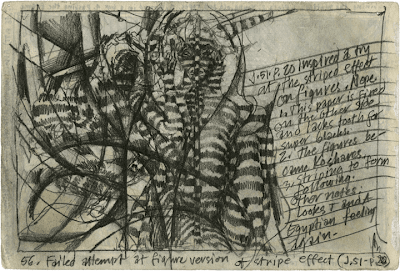 J.51.P. 20 inspired a try
at the striped effect
on figures. Nope.
1. This paper is lined
on the other side
and lacks tooth for
super blacks.
2. The figures be-
came
3. Striping to form
following.
Other notes.
Looks
Egyptian feeling
again.
56. Failed attempt at figure version of stripe effect (J.51-P.20)